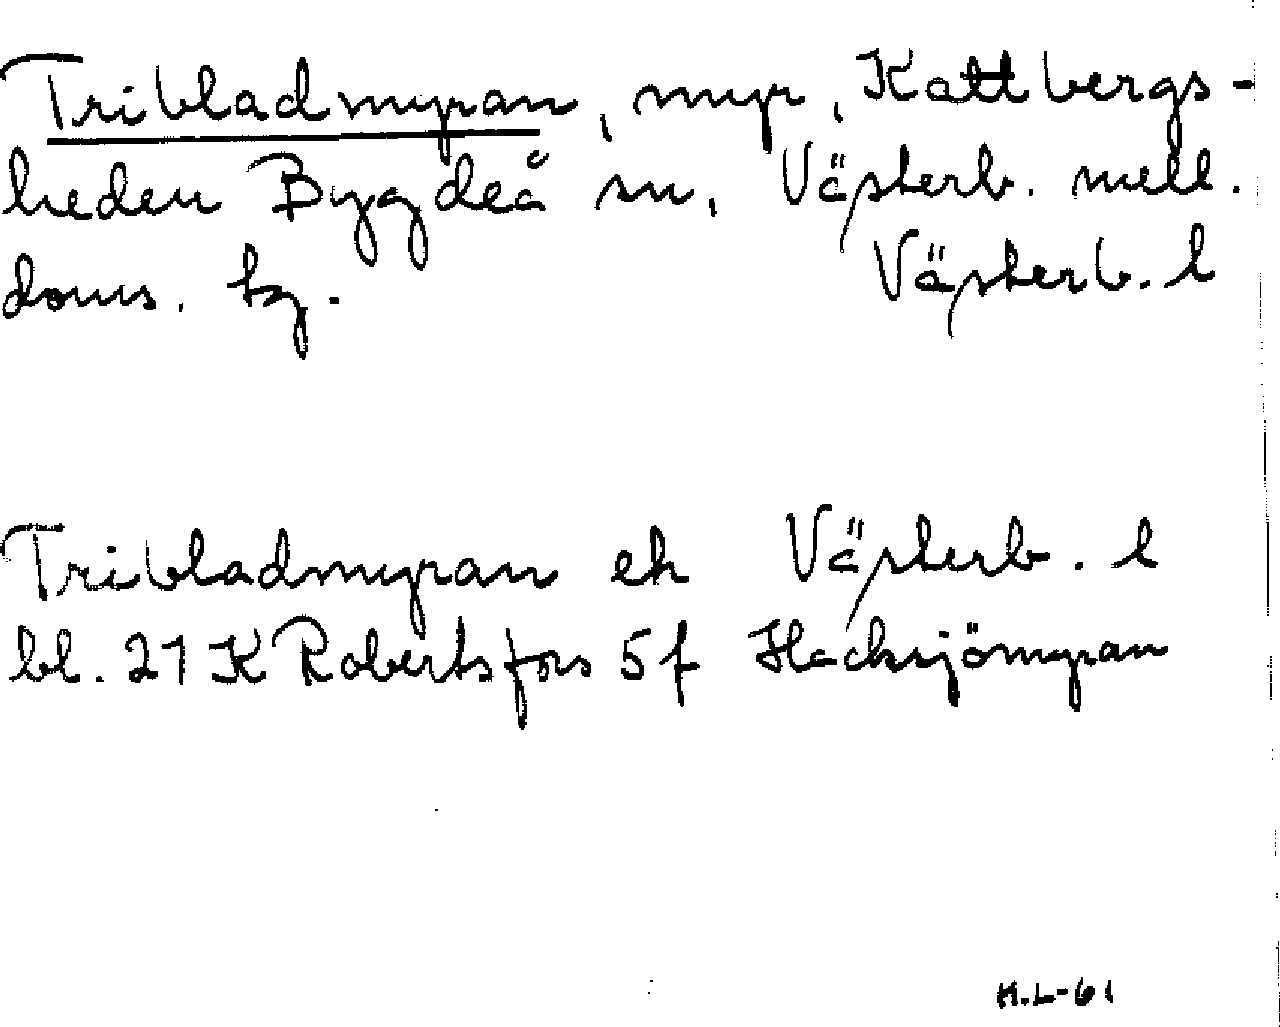 Tribladmyran, myr, Kattbergs-
heden Bygdeå sn, Västerb. mell.
doms. tg. Västerb. l
Tribladmyran ek Västerb. l
bl. 21 K Robertsfors 5 f Hacksjömyran
H.L-61